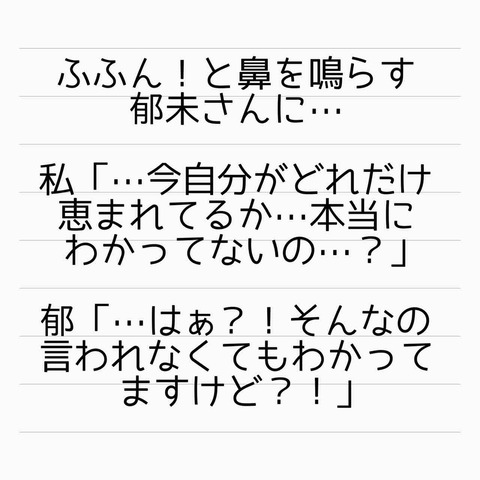 ふふん！と鼻を鳴らす
郁未さんに…
私「…今自分がどれだけ
恵まれてるか…本当に
わかってないの…？」
郁「…はぁ？！そんなの
言われなくてもわかって
ますけど？！」